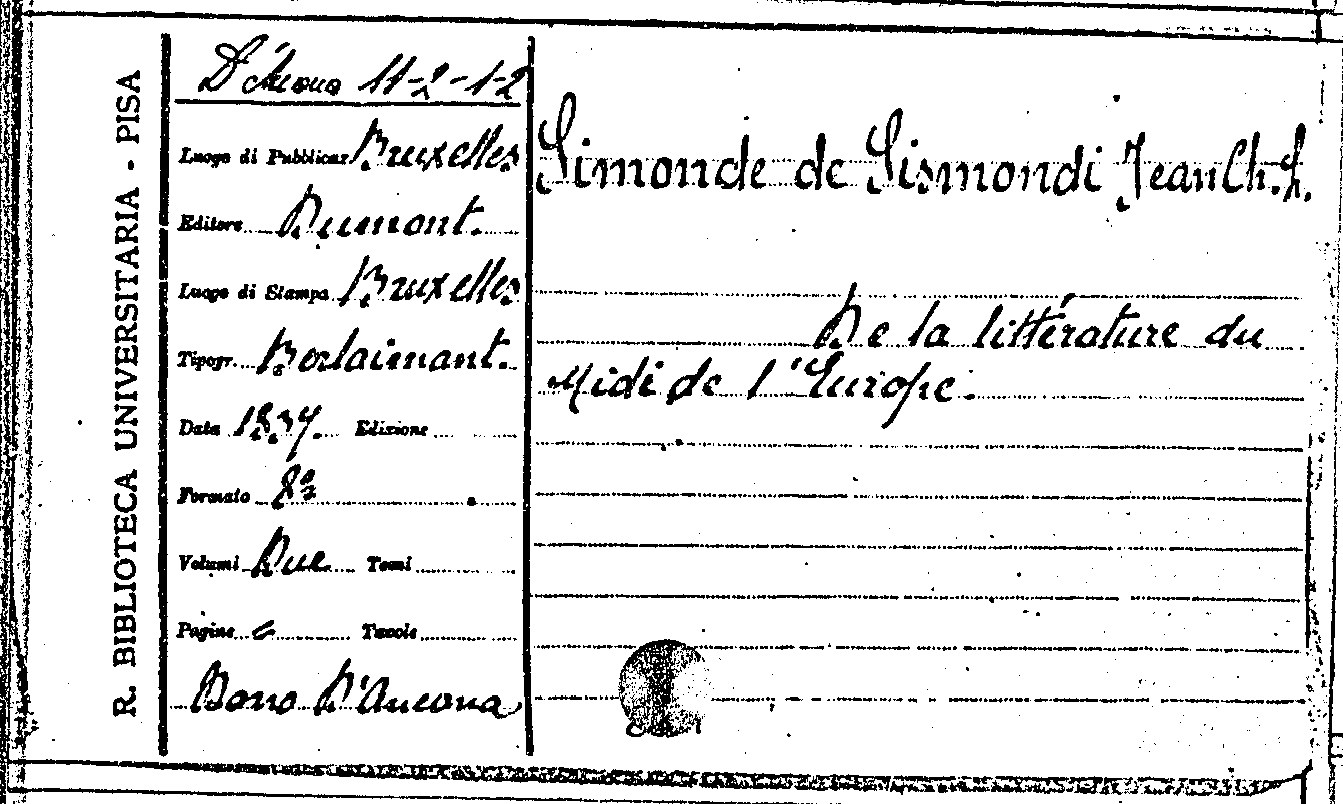 R. BIBLIOTECA UNIVERSITARIA - PISA
D'Ancona 11-2-1-2
Luogo di Pubblicaz. Bruxelles
Editore Dumont.
Luogo di Stampa Bruxelles
Tipogr. Berlaimont.
Data 1837. Edizione
Formato 8º
Volumi Due Tomi
Pagine c Tavole
Dono D'Ancona
Simonde de Sismondi Jean Ch. L.
De la littérature du
Midi de l'Europe.